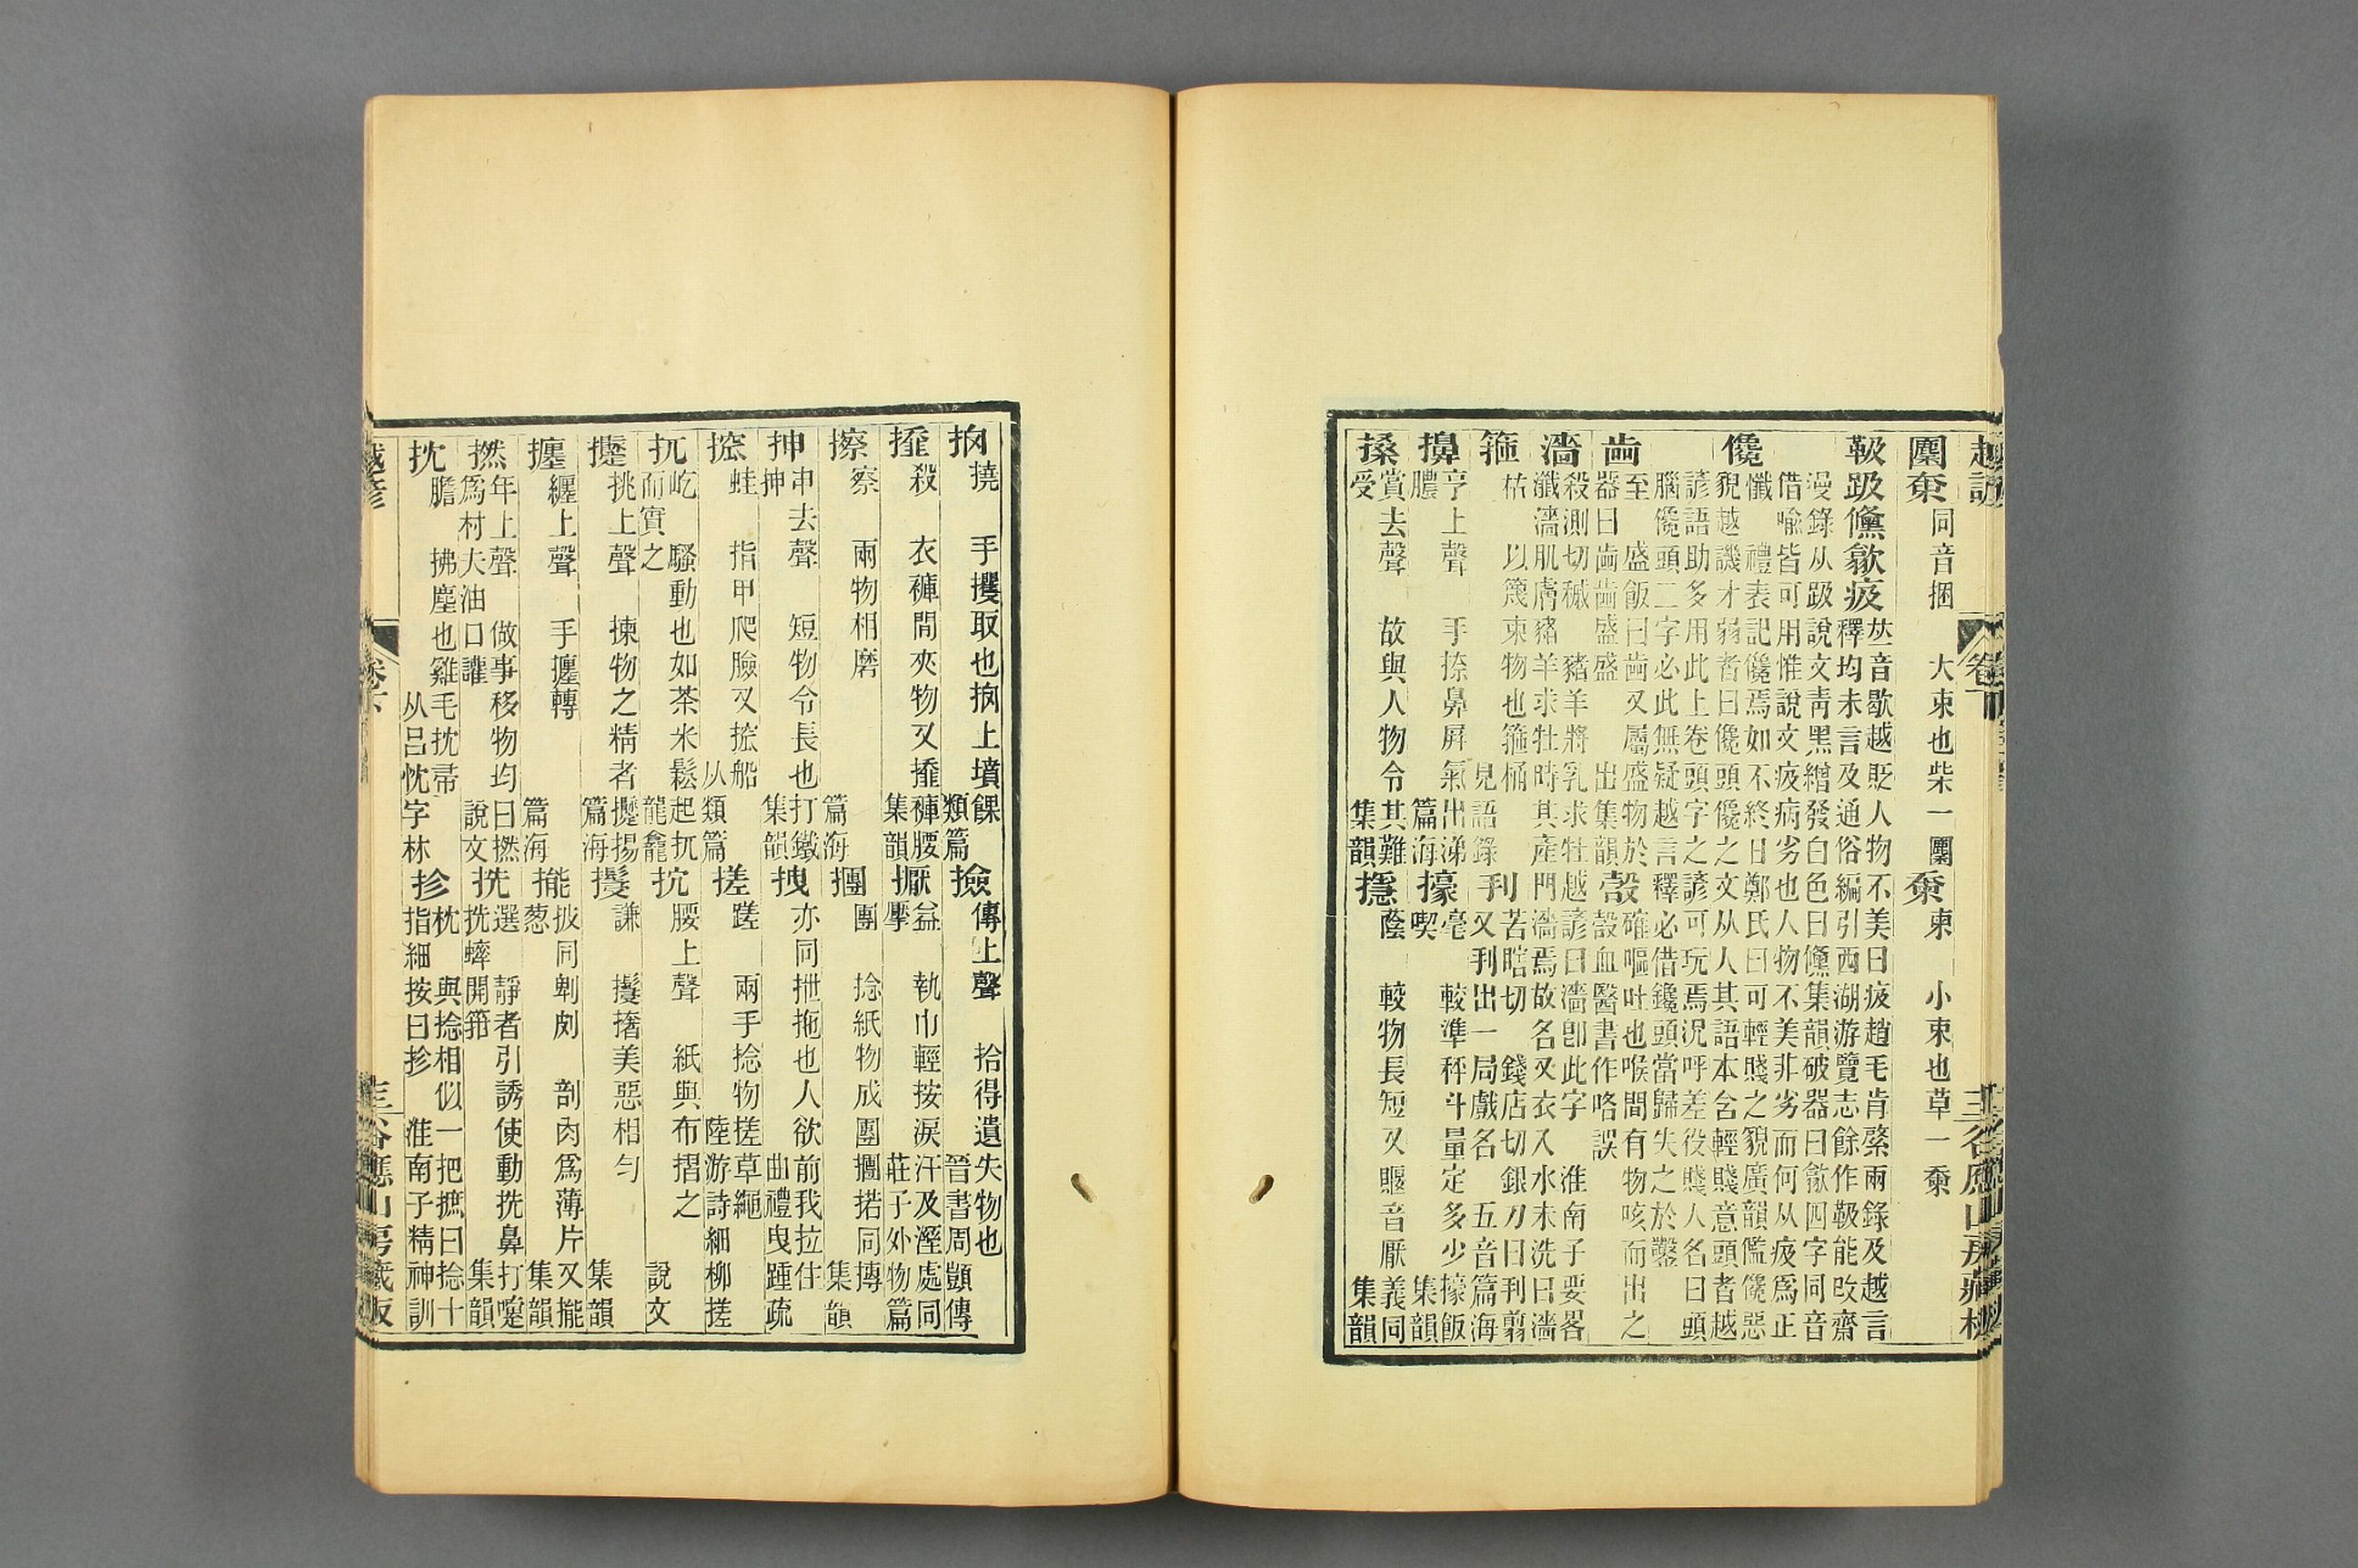 越諺
卷下
谷應山房藏板
同音捆　大束也柴一
小束也草一
𠀤音歇越貶人物不美曰疲趙毛肯綮兩錄及越言
釋均未言及通俗編引西湖游覽志餘作靸能改齋
漫錄从趿說文靑黑繒發白色曰儵集韻破器曰㱆四字同音
借喻皆可用惟說文疲病劣也人物不美非劣而何从疲爲正
儳
懺　禮表記儳焉如不終日鄭氏曰可輕賤之貌廣韻儖儳惡
貌越譏才弱者曰儳頭儳之文从人其語本含輕賤意頭者越
諺語助多用此上卷頭字之諺可玩焉況呼差役賤人名曰頭
腦儳頭二字必此無疑越言釋必借鑱頭當歸失之於鑿
至　盛飯曰　又屬盛物於
器曰　盛盛　出集韻
㱿
確嘔吐也喉間有物咳而出之
㱿血醫書作咯誤
濇
殺測切穢　豬羊將乳求牡越諺曰濇卽此字　淮南子要畧
濈濇肌膚豬羊求牡時其產門濇焉故名又衣入水未洗曰濇
箍
枯　以篾束物也箍桶　見語錄
刊
苦瞎切　錢店切銀刀曰刊翦
又刊出一局戲名　五音篇海
擤
亨上聲　手捺鼻屏氣出涕
膿　篇海
㩝
毫　較準秤斗量定多少㩝飯
喫　集韻
搡
賞去聲　故與人物令其難
受　集韻
㨷
蔭　較物長短又賜音厭義同
集韻
撓　手攫取也　上墳餜
類篇
撿
傳上聲　拾得遺失物也
晉書周顗傳
殺　衣褲間夾物又　褲腰
集韻
擫
益　執巾輕按淚汗及溼處同
擪　莊子外物篇
擦
察　兩物相磨
篇海
團　捻紙物成團　捃同摶
集韻
抻
申去聲　短物令長也打鐵
抻　集韻
拽
亦同抴拖也人欲前我拉住
曲禮曳踵疏
蛙　指甲爬臉又　船
从類篇
搓
蹉　兩手捻物搓草繩
陸游詩細柳搓
扤
屹　騷動也如茶米鬆起扤
而實之　龍龕
腰上聲　紙與布摺之
說文
挑上聲　揀物之精者　揚
篇海
謙　撦美惡相勻
集韻
纏上聲　手　轉
篇海
披同㓟㓟　剖肉爲薄片又
葱　集韻
撚
年上聲　做事移物均曰撚
爲村夫油口讙　說文
㧥
選　靜者引誘使動　鼻打嚏
蟀開箝　集韻
抌
膽　拂塵也雞毛抌帚
从呂忱字林
抮
枕　與捻相似一把摭曰捻十
指細按曰抮　淮南子精神訓
越諺
卷下
谷應山房藏板